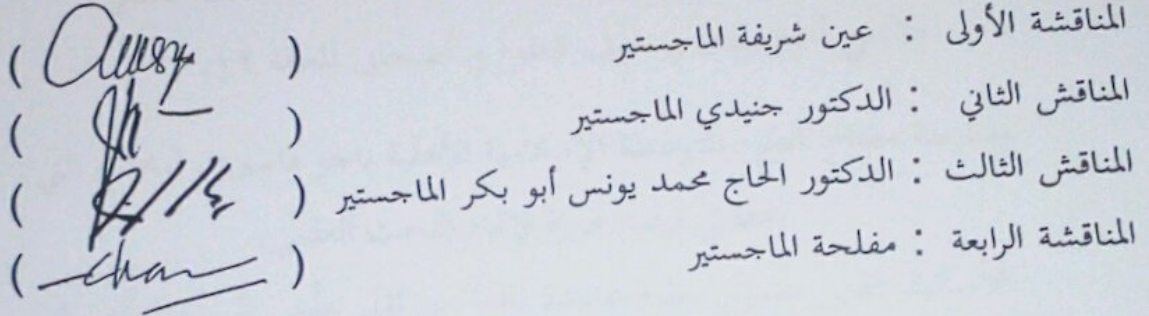 المناقشة الأولى : عين شريفة الماجستير ( )
المناقش الثاني : الدكتور جنيدي الماجستير ( )
المناقش الثالث : الدكتور الحاج محمد يونس أبو بكر الماجستير ( )
المناقشة الرابعة : مفلحة الماجستير ( )